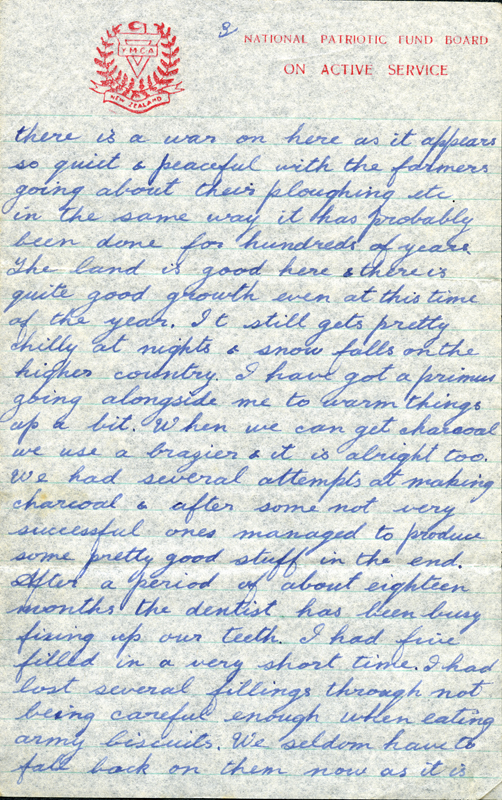 2
NATIONAL PATRIOTIC FUND BOARD
ON ACTIVE SERVICE
Y.M.C.A
NEW ZEALAND
there is a war on here as it appears
so quiet & peaceful with the farmers
going about their ploughing etc.
in the same way it has probably
been done for hundreds of years.
The land is good here & there is
quite good growth even at this time
of the year. It still gets pretty
chilly at nights & snow falls on the
higher country. I have got a primus
going alongside me to warm things
up a bit. When we can get charcoal
we use a brazier & it is alright too.
We had several attempts at making
charcoal & after some not very
successful ones managed to produce
some pretty good stuff in the end.
After a period of about eighteen
months the dentist has been busy
fixing up our teeth. I had five
filled in a very short time. I had
lost several fillings through not
being careful enough when eating
army biscuits. We seldom have to
fall back on them now as it is